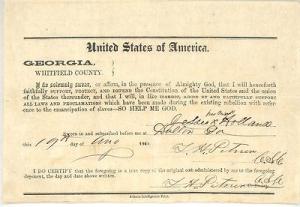 United States of America.
GEORGIA,
WHITFIELD COUNTY.
do solemnly swear, or affirm, in the presence of Almighty God, that I will henceforth
faithfully SUPPORT, PROTECT, AND DEFEND the Constitution of the United States and the union
of the States thereunder, and that I will, in like manner, ABIDE BY AND FAITHFULLY SUPPORT
ALL LAWS AND PROCLAMATIONS which have been made during the existing rebellion with reference
to the emancipation of slaves—SO HELP ME GOD.
Holland
Sworn to and subscribed before me at Dalton Ga
this 19th day of Aug 186
I DO CERTIFY that the foregoing is a true copy of the original oath administered by me to the foregoing
the day and date above written.